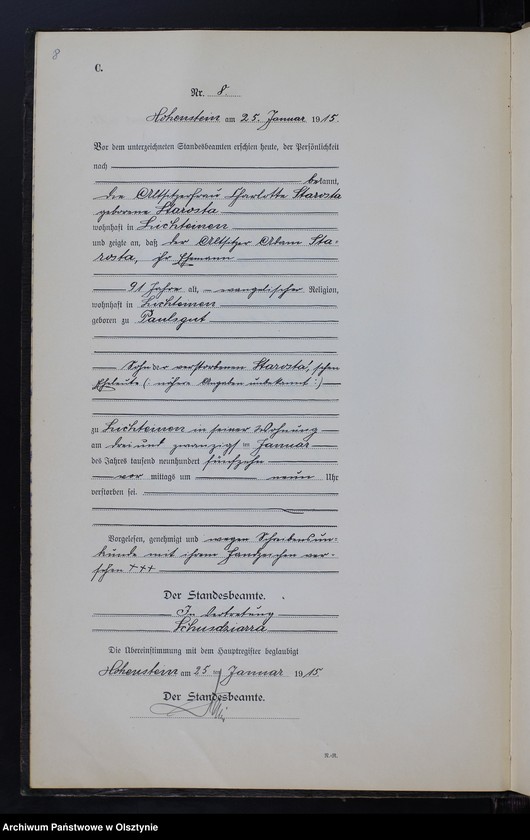 8
C.
Nr. 8.
Hohenstein am 25. Januar 1915.
Vor dem unterzeichneten Standesbeamten erschien heute, der Persönlichkeit
nach
bekannt,
die Altsitzerfrau Charlotte Starosta
geborene Starosta
wohnhaft in Lichteinen
und zeigte an, daß der Altsitzer Adam Sta-
rosta, ihr Ehemann
91 Jahre alt, evangelischer Religion,
wohnhaft in Lichteinen
geboren zu Paulsgut
Sohn der verstorbenen Starosta'schen
Eheleute (: nähere Angaben unbekannt :)
zu Lichteinen in seiner Wohnung
am drei und zwanzigsten Januar
des Jahres tausend neunhundert fünfzehn
vor mittags um neun Uhr
verstorben sei.
Vorgelesen, genehmigt und wegen Schreibensun-
kunde mit ihrem Handzeichen ver-
sehen +++
Der Standesbeamte.
In Vertretung
Schusdziarra
Die Übereinstimmung mit dem Hauptregister beglaubigt
Hohenstein am 25 ten Januar 1915
Der Standesbeamte.
Archiwum Państwowe w Olsztynie